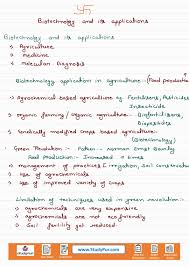 Biotechnology and its applications
Biotechnology and its applications
→ Agriculture
→ medicine
→ molecular Diagnosis
Biotechnology application in agriculture (Food production
→ Agrochemical based agriculture eg. Fertilizers, Pesticides
Insecticide
→ organic farming / organic agriculture - Biofertilizers,
Biopesticides
→ Genetically modified crops based agriculture-
(Biotechnology)
→ Green Revolution :-
Food production:- Increased
→ management of practices Eg irrigation, Soil
→ use of agrochemicals
→ use of improved variety of crops
Limitation of techniques used in green revolution:-
→ agrochemicals are very expensive
→ agrochemicals are not eco friendly
→ Soil fertility get reduced
www.Studyfur.com